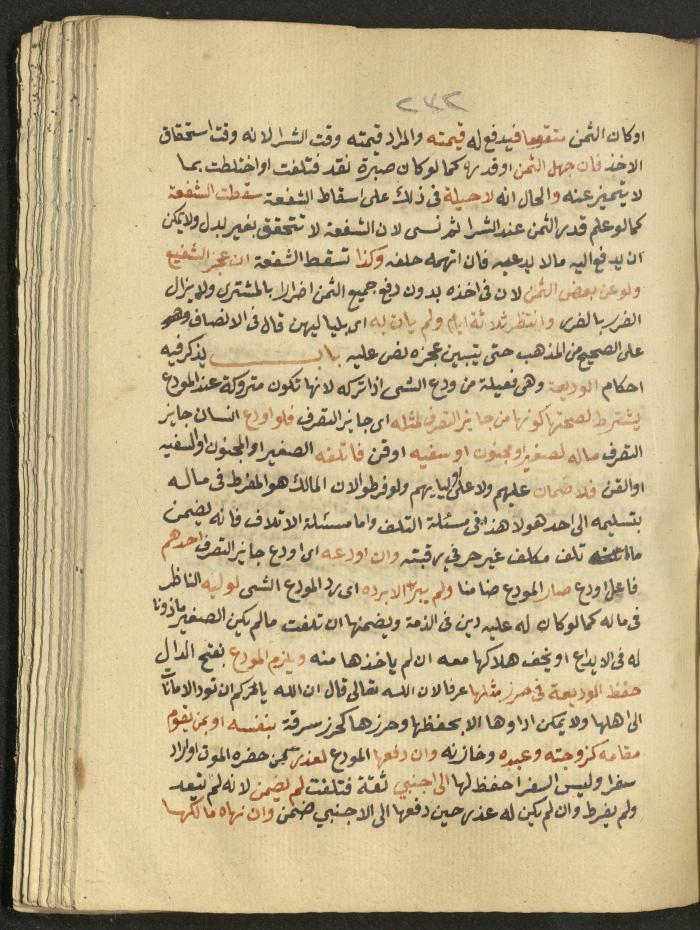 ٢٣٢
او كان الثمن متقوما فيدفع له قيمته والمراد قيمته وقت الشرا لانه وقت استحقاق
الاخذ فان جهل الثمن او قدره كما لو كان صبرة نقد فتلفت او اختلطت بما
لا يتميز عنه والحال انه لا حيلة في ذلك على اسقاط الشفعة سقطت الشفعة
كما لو علم قدر الثمن عند الشرا ثم نسى لان الشفعة لا تتحقق بغير بدل ولا يمكن
ان يدفع اليه مالا يدعيه فان اتهمه حلفه وكذا تسقط الشفعة ان عجز الشفيع
ولو عن بعض الثمن لان في اخذه بدون دفع جميع الثمن اضرارا بالمشترى ولا يزال
الضرر بالضرر وانتظر ثلاثة ايام ولم يات به اى بلياليهن قال في الانصاف وهو
على الصحيح من المذهب حتى يتبين عجزه نص عليه باب يذكر فيه
احكام الوديعة وهى فعيلة من ودع الشى اذا تركه لانها تكون متروكة عند المودع
يشترط لصحتها كونها من جايز التصرف لمثله اى جايز التصرف فلو اودع انسان جايز
التصرف ماله لصغير او مجنون او سفيه او قن فاتلفه الصغير او المجنون او السفيه
او القن فلا ضمان عليهم ولا على اوليايهم ولو فرطوا لان المالك هو المفرط في ماله
بتسليمه الى احد هولا هذا في مسئلة التلف واما مسئلة الاتلاف فانه يضمن
ما تلف مكلف غير حر في رقبته وان اودعه اى اودع جايز التصرف احدهم
فاعل اودع صار المودع ضامنا ولم يبرا الا برده اى رد المودع الشى لوليه الناظر
في ماله كما لو كان له عليه دين في الذمة ويضمنها ان تلفت مالم يكن الصغير ماذونا
له في الايداع او يخف هلاكها معه ان لم ياخذها منه ويلزم المودع بفتح الدال
حفظ الوديعة في حرز مثلها عرفا لان الله تعالى قال ان الله يامركم ان تودوا الامانات
الى اهلها ولا يمكن اداوها الا بحفظها وحرزها كحرز سرقة بنفسه او بمن يقوم
مقامه كزوجته وعبده وخازنه وان دفعها المودع لعذر كمن حضره الموت او اراد
سفرا وليس السفر احفظ لها الى اجنبي ثقة فتلفت لم يضمن لانه لم يتعد
ولم يفرط وان لم يكن له عذر حين دفعها الى الاجنبي ضمن وان نهاه مالكها